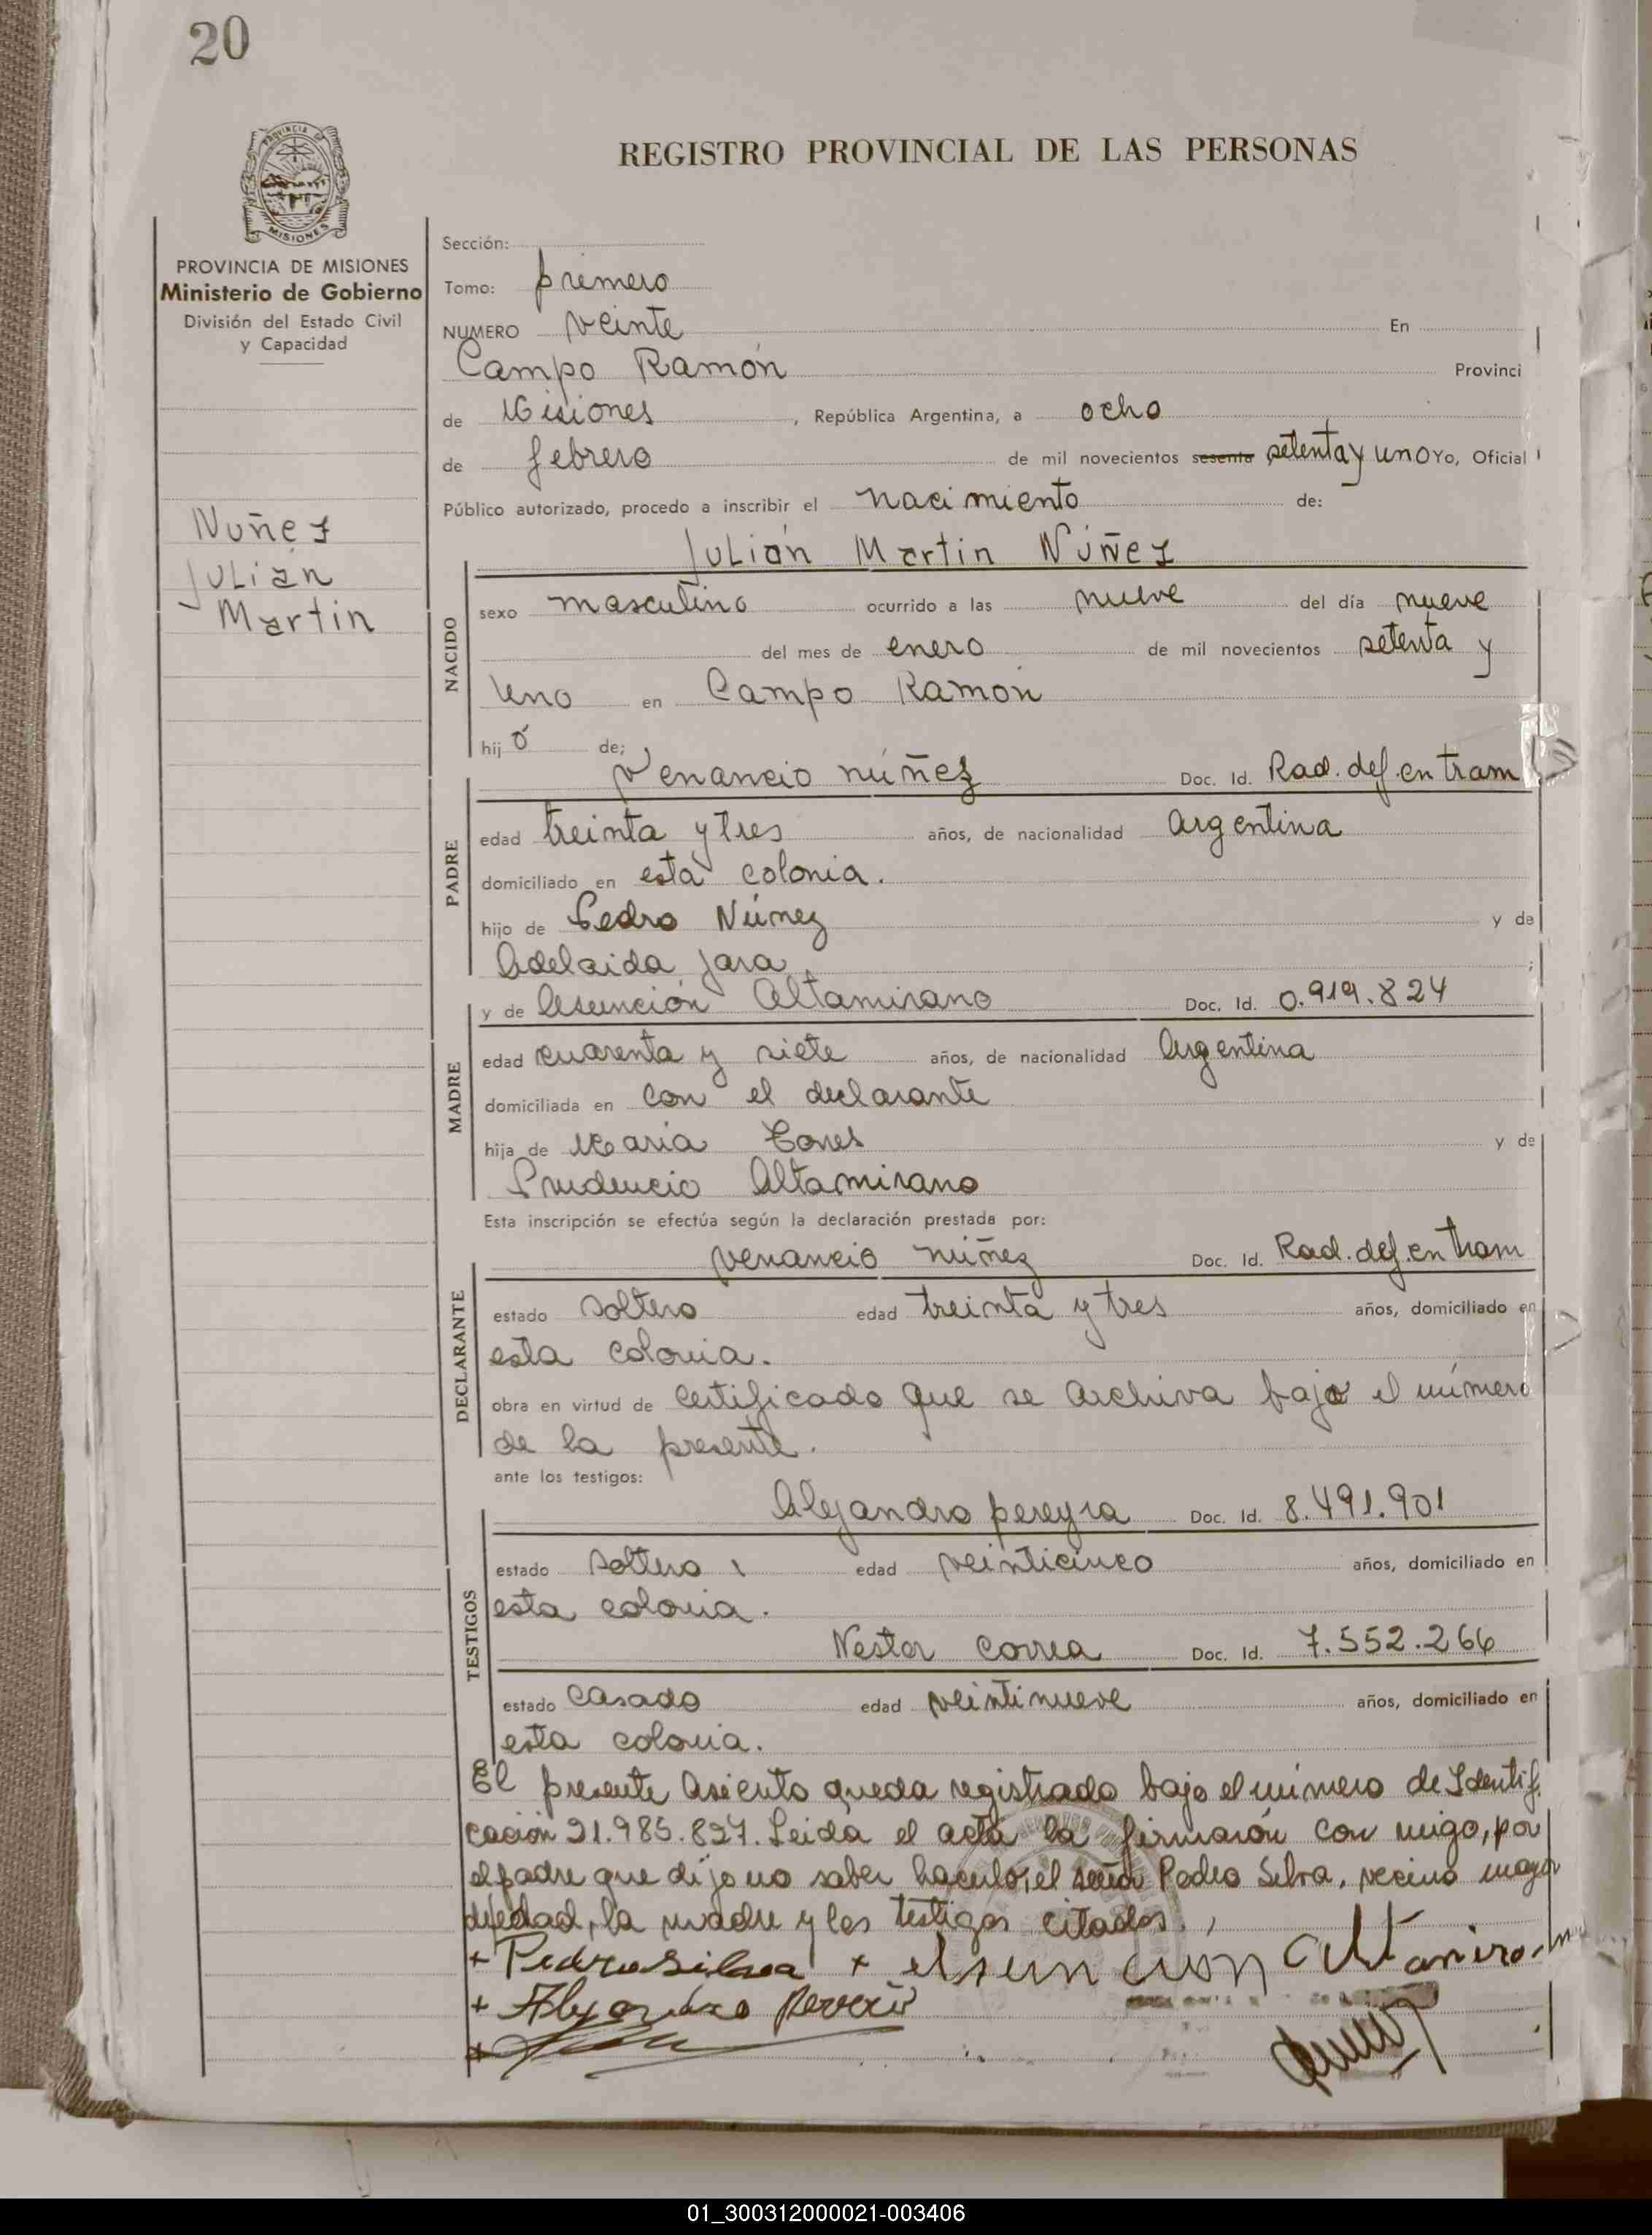 20
REGISTRO PROVINCIAL DE LAS PERSONAS
PROVINCIA DE MISIONES
Ministerio de Gobierno
División del Estado Civil
y Capacidad
Nuñez
Julián
Martin
Sección:
Tomo: primero
NUMERO veinte En
Campo Ramón Provinci
de Misiones, República Argentina, a ocho
de febrero de mil novecientos sesenta setenta y uno Yo, Oficial
Público autorizado, procedo a inscribir el nacimiento de:
Julián Martin Núñez
NACIDO
sexo masculino ocurrido a las nueve del día nueve
del mes de enero de mil novecientos setenta y
uno en Campo Ramón
hijo de;
Venancio núñez Doc. Id. Rad. def. en tram
PADRE
edad treinta y tres años, de nacionalidad argentina
domiciliado en esta colonia.
hijo de Pedro Núnez y de
Adelaida Jara ;
y de Asunción Altamirano Doc. Id. 0.919.824
MADRE
edad cuarenta y siete años, de nacionalidad Argentina
domiciliada en con el declarante
hija de Maria y de
Prudencio Altamirano
Esta inscripción se efectúa según la declaración prestada por:
venancio núñez Doc. Id. Rad. def. en tram
DECLARANTE
estado soltero edad treinta y tres años, domiciliado en
esta colonia.
obra en virtud de certificado que se archiva bajo el número
de la presente.
ante los testigos:
Alejandro pereyra Doc. Id. 8.491.901
TESTIGOS
estado soltero edad veinticinco años, domiciliado en
esta colonia.
Nestor Correa Doc. Id. 7.552.266
estado casado edad veintinueve años, domiciliado en
esta colonia.
El presente Asiento queda registrado bajo el número de Identifi
cación 21.985.827. Leida el acta la firmarón con migo, por
el padre que dijo no saber hacerlo, el señor Pedro Silva, vecino mayor
de edad, la madre y los testigos citados.
+ Pedro Silva + Asuncion Altamirano
+ Alejandro
01_300312000021-003406